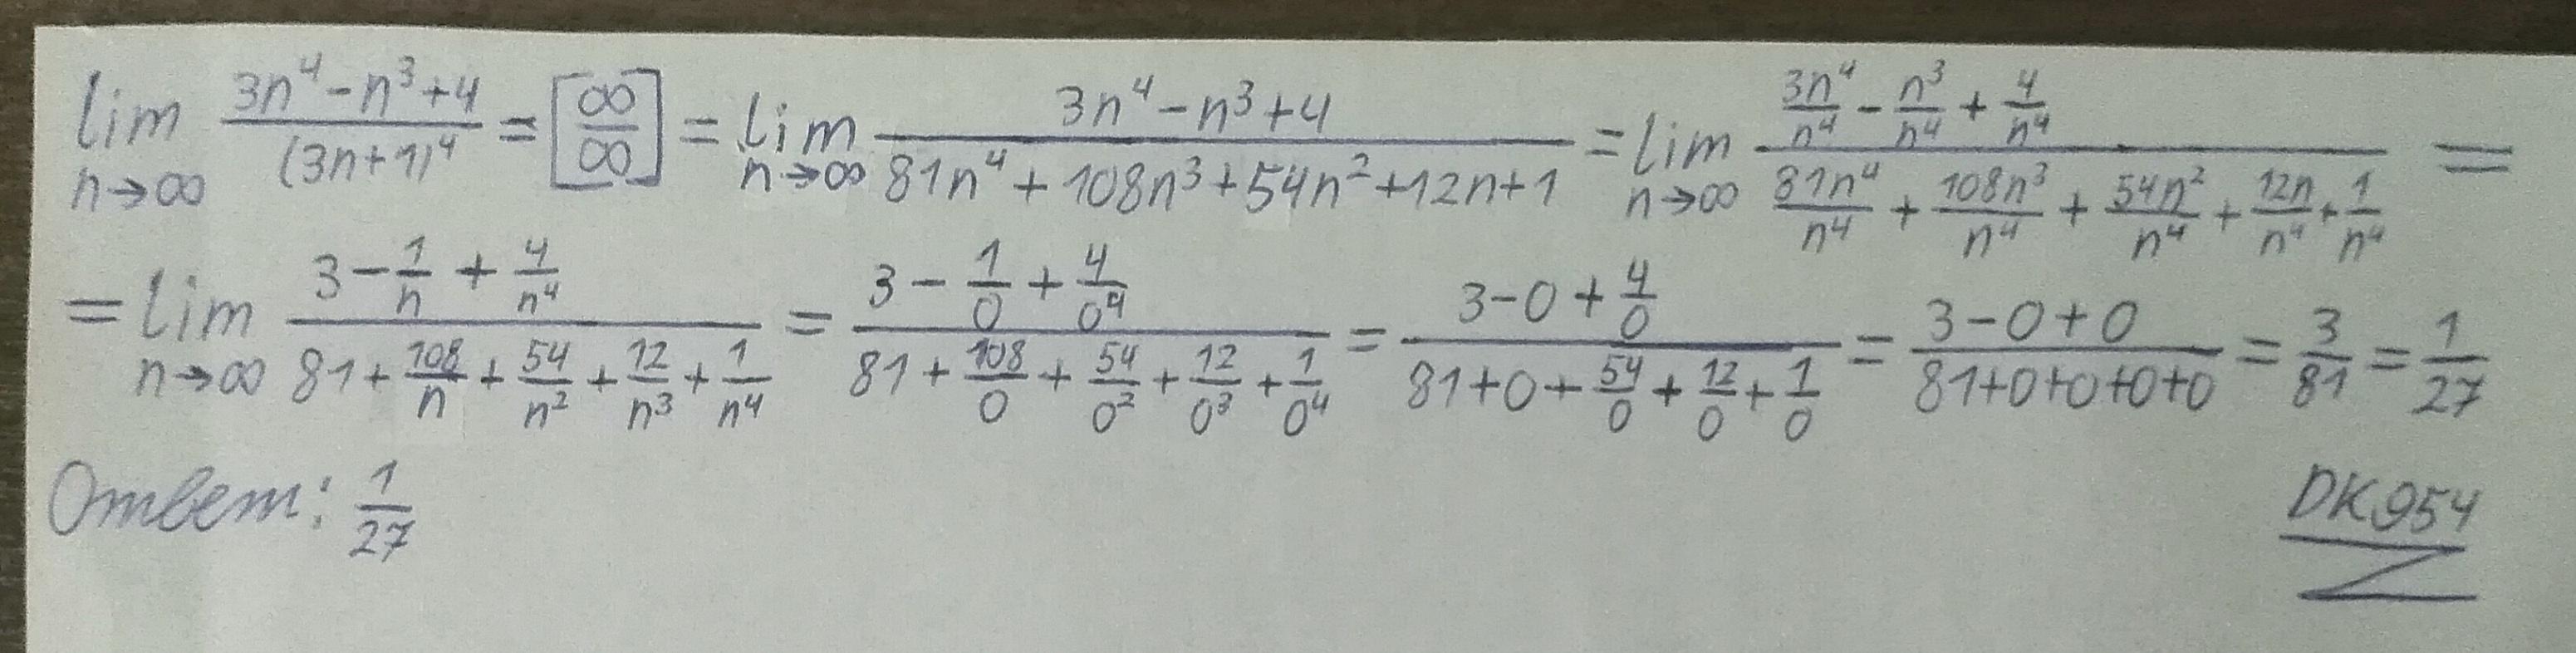 lim n→∞ (3n⁴-n³+4)/(3n+1)⁴ = [∞/∞] = lim n→∞ (3n⁴-n³+4)/(81n⁴+108n³+54n²+12n+1) = lim n→∞ (3n⁴/n⁴ - n³/n⁴ + 4/n⁴)/(81n⁴/n⁴ + 108n³/n⁴ + 54n²/n⁴ + 12n/n⁴ + 1/n⁴) =
= lim n→∞ (3 - 1/n + 4/n⁴)/(81 + 108/n + 54/n² + 12/n³ + 1/n⁴) = (3 - 1/0 + 4/0⁴)/(81 + 108/0 + 54/0² + 12/0³ + 1/0⁴) = (3-0+4/0)/(81+0+54/0+12/0+1/0) = (3-0+0)/(81+0+0+0+0) = 3/81 = 1/27
Ответ: 1/27
DK954